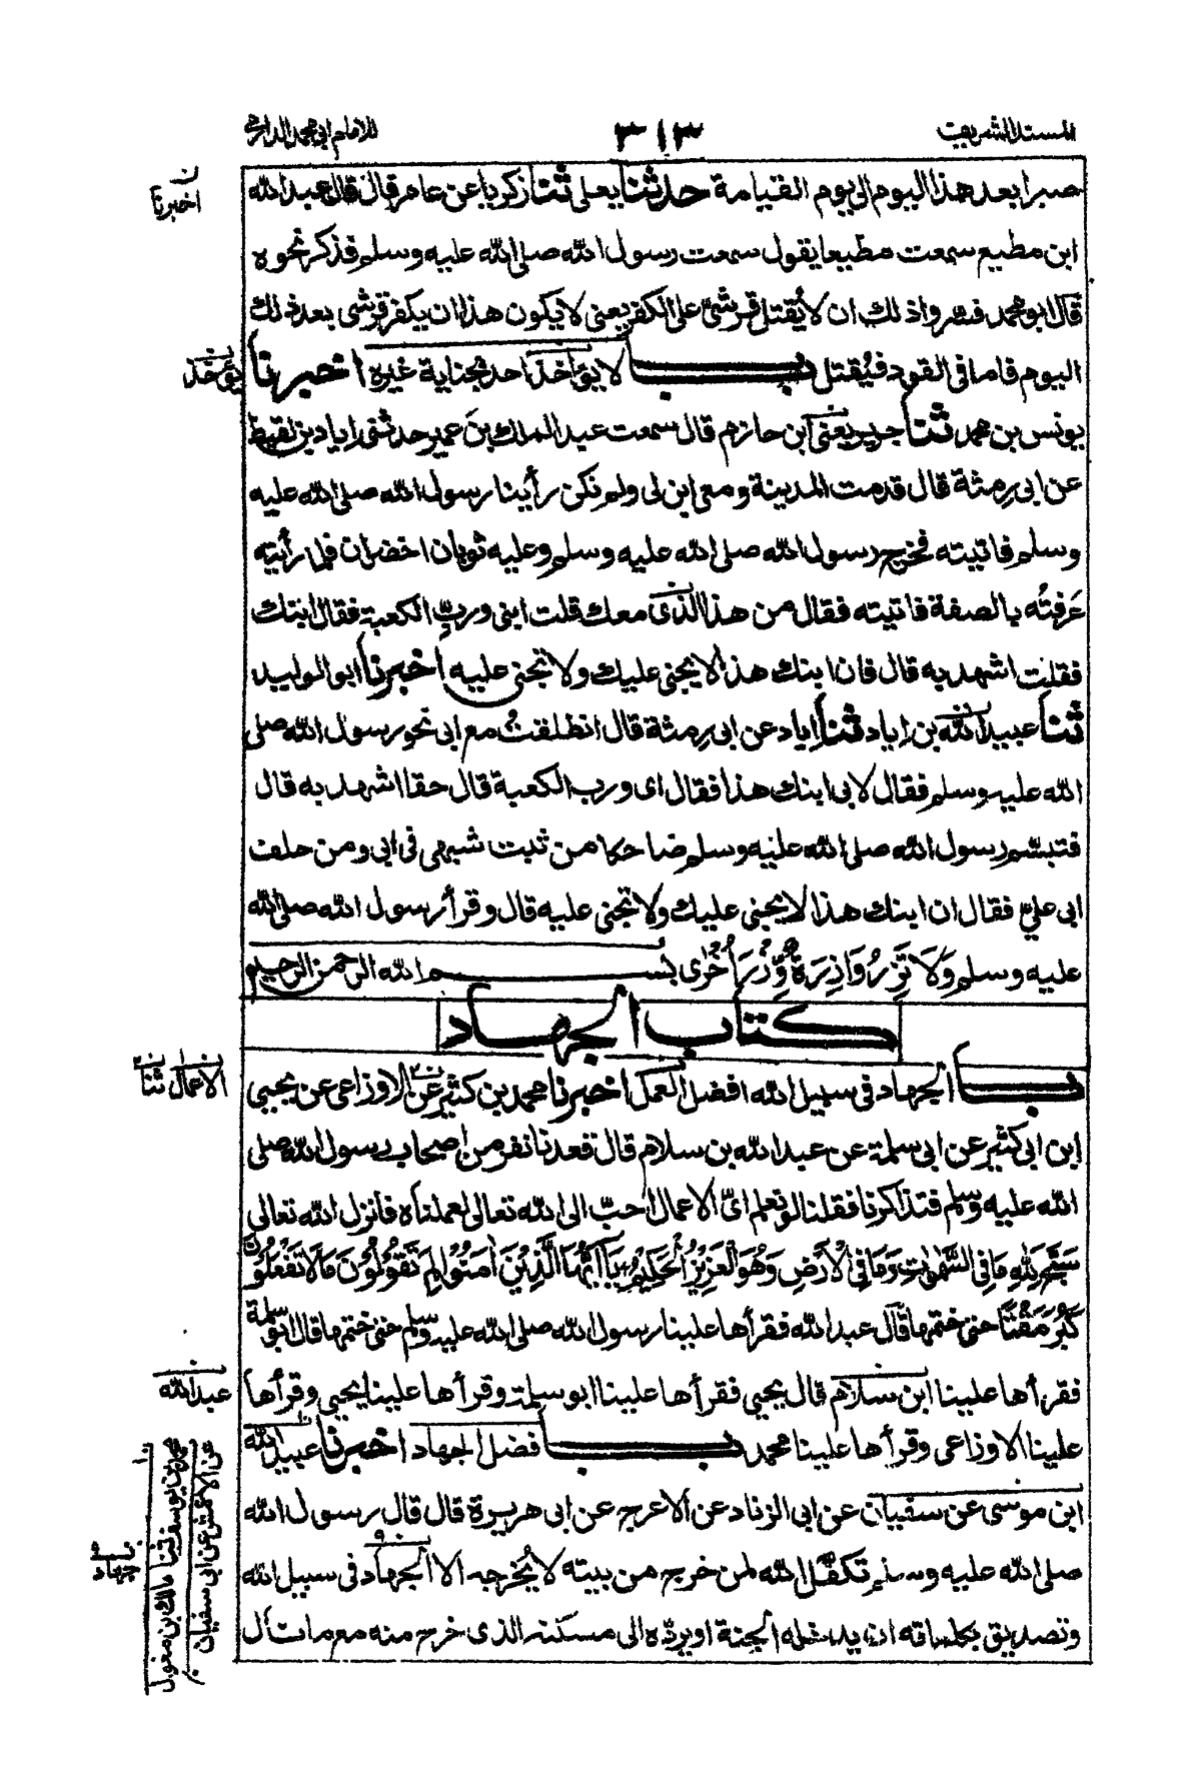 المسند الشريف
٣١٣
للامام ابى محمد الدارمى
صبرا بعد هذا اليوم الى يوم القيامة حدثنا يعلى ثنا زكريا عن عامر قال قال عبد الله
ابن مطيع سمعت مطيعا يقول سمعت رسول الله صلى الله عليه وسلم فذكر نحوه
قال ابو محمد فسروا ذلك ان لا يُقتل قرشىّ على الكفر يعنى لا يكون هذا ان يكفر قرشى بعد ذلك
اليوم فاما فى القود فيُقتل باب لا يؤاخذ احد بجناية غيره اخبرنا
يونس بن محمد ثنا جرير يعنى ابن حازم قال سمعت عبد الملك بن عمير حدثنى اياد بن لقيط
عن ابى رِمثة قال قدمت المدينة ومعى ابن لى ولم نكن رأينا رسول الله صلى الله عليه
وسلم فاتيته فخرج رسول الله صلى الله عليه وسلم وعليه ثوبان اخضران فلما رأيته
عَرفتُه بالصفة فاتيته فقال من هذا الذى معك قلت ابنى وربِّ الكعبة فقال ابنك
فقلت اشهد به قال فان ابنك هذا لا يجنى عليك ولا تجنى عليه اخبرنا ابو الوليد
ثنا عبيد الله بن اياد ثنا اياد عن ابى رِمثة قال انطلقتُ مع ابى نحو رسول الله صلى
الله عليه وسلم فقال لابى ابنك هذا فقال اى ورب الكعبة قال حقا اشهد به قال
فتبسّم رسول الله صلى الله عليه وسلم ضاحكا من ثبت شبهى فى ابى ومن حلف
ابى علىّ فقال ان ابنك هذا لا يجنى عليك ولا تجنى عليه قال وقرأ رسول الله صلى الله
عليه وسلم وَلَا تَزِرُ وَازِرَةٌ وِّزْرَ أُخْرٰى بسم الله الرحمن الرحيم
كتاب الجهاد
باب الجهاد فى سبيل الله افضل العمل اخبرنا محمد بن كثير عن الاوزاعى عن يحيى
ابن ابى كثير عن ابى سلمة عن عبد الله بن سلام قال قعدنا نفر من اصحاب رسول الله صلى
الله عليه وسلم فتذاكرنا فقلنا لو نعلم اىّ الاعمال احبّ الى الله تعالى لعملناه فانزل الله تعالى
سَبَّحَ لِلّٰهِ مَا فِى السَّمٰوٰتِ وَمَا فِى الْأَرْضِ وَهُوَ الْعَزِيْزُ الْحَكِيْمُ يَآ اَيُّهَا الَّذِيْنَ اٰمَنُوْا لِمَ تَقُوْلُوْنَ مَا لَا تَفْعَلُوْنَ
كَبُرَ مَقْتًا حتى ختمها قال عبد الله فقرأها علينا رسول الله صلى الله عليه وسلم حتى ختمها قال ابو سلمة
فقرأها علينا ابن سلام قال يحيى فقرأها علينا ابو سلمة وقرأها علينا يحيى وقرأها
علينا الاوزاعى وقرأها علينا محمد باب فضل الجهاد اخبرنا عبيد الله
ابن موسى عن سفيان عن ابى الزناد عن الاعرج عن ابى هريرة قال قال رسول الله
صلى الله عليه وسلم تكفّل الله لمن خرج من بيته لا يُخرجه الا الجهاد فى سبيل الله
وتصديق بكلماته ان يدخله الجنة او يردّه الى مسكنه الذى خرج منه مع ما نال
اخبرنا
يؤخذ
الاعمال ثنا
عبد الله
محمد بن يوسف ثنا مالك بن مغول
عن الاعمش عن ابى سفيان
جهاد